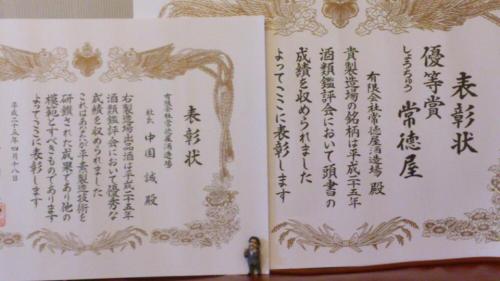 表彰状
優等賞
しょうちゅう 常徳屋
有限会社常徳屋酒造場 殿
貴製造場の銘柄は平成二十五年
酒類鑑評会において頭書の
成績を収められました
よってここに表彰します
表彰状
有限会社常徳屋酒造場
社長 中園 誠 殿
右製造場出品酒は平成二十五年
酒類鑑評会において優秀な
成績を収められました
これはあなたが平素製造技術を
研鑽された成果であり他の
模範とすべきものであります
よってここに表彰します
平成二十五年四月十八日